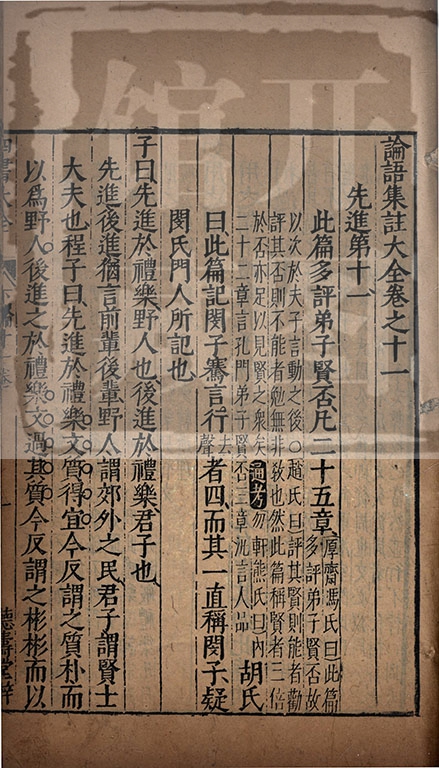 論語集註大全卷之十一
先進第十一
此篇多評弟子賢否凡二十五章厚齋馮氏曰此篇多評弟子賢否故
以次於夫子言動之後○趙氏曰評其賢則能者勸
評其否則不能者勉無非敎也然此篇稱賢者三倍
於否亦足以見賢之衆矣通考勿軒熊氏曰內
二十二章言孔門弟子賢否三章汎言人品
胡氏
曰此篇記閔子騫言行去聲者四而其一直稱閔子疑
閔氏門人所記也
子曰先進於禮樂野人也後進於禮樂君子也
先進後進猶言前輩後輩野人謂郊外之民君子謂賢士
大夫也程子曰先進於禮樂文質得宜今反謂之質朴而
以爲野人後進之於禮樂文過其質今反謂之彬彬而以
德壽堂梓